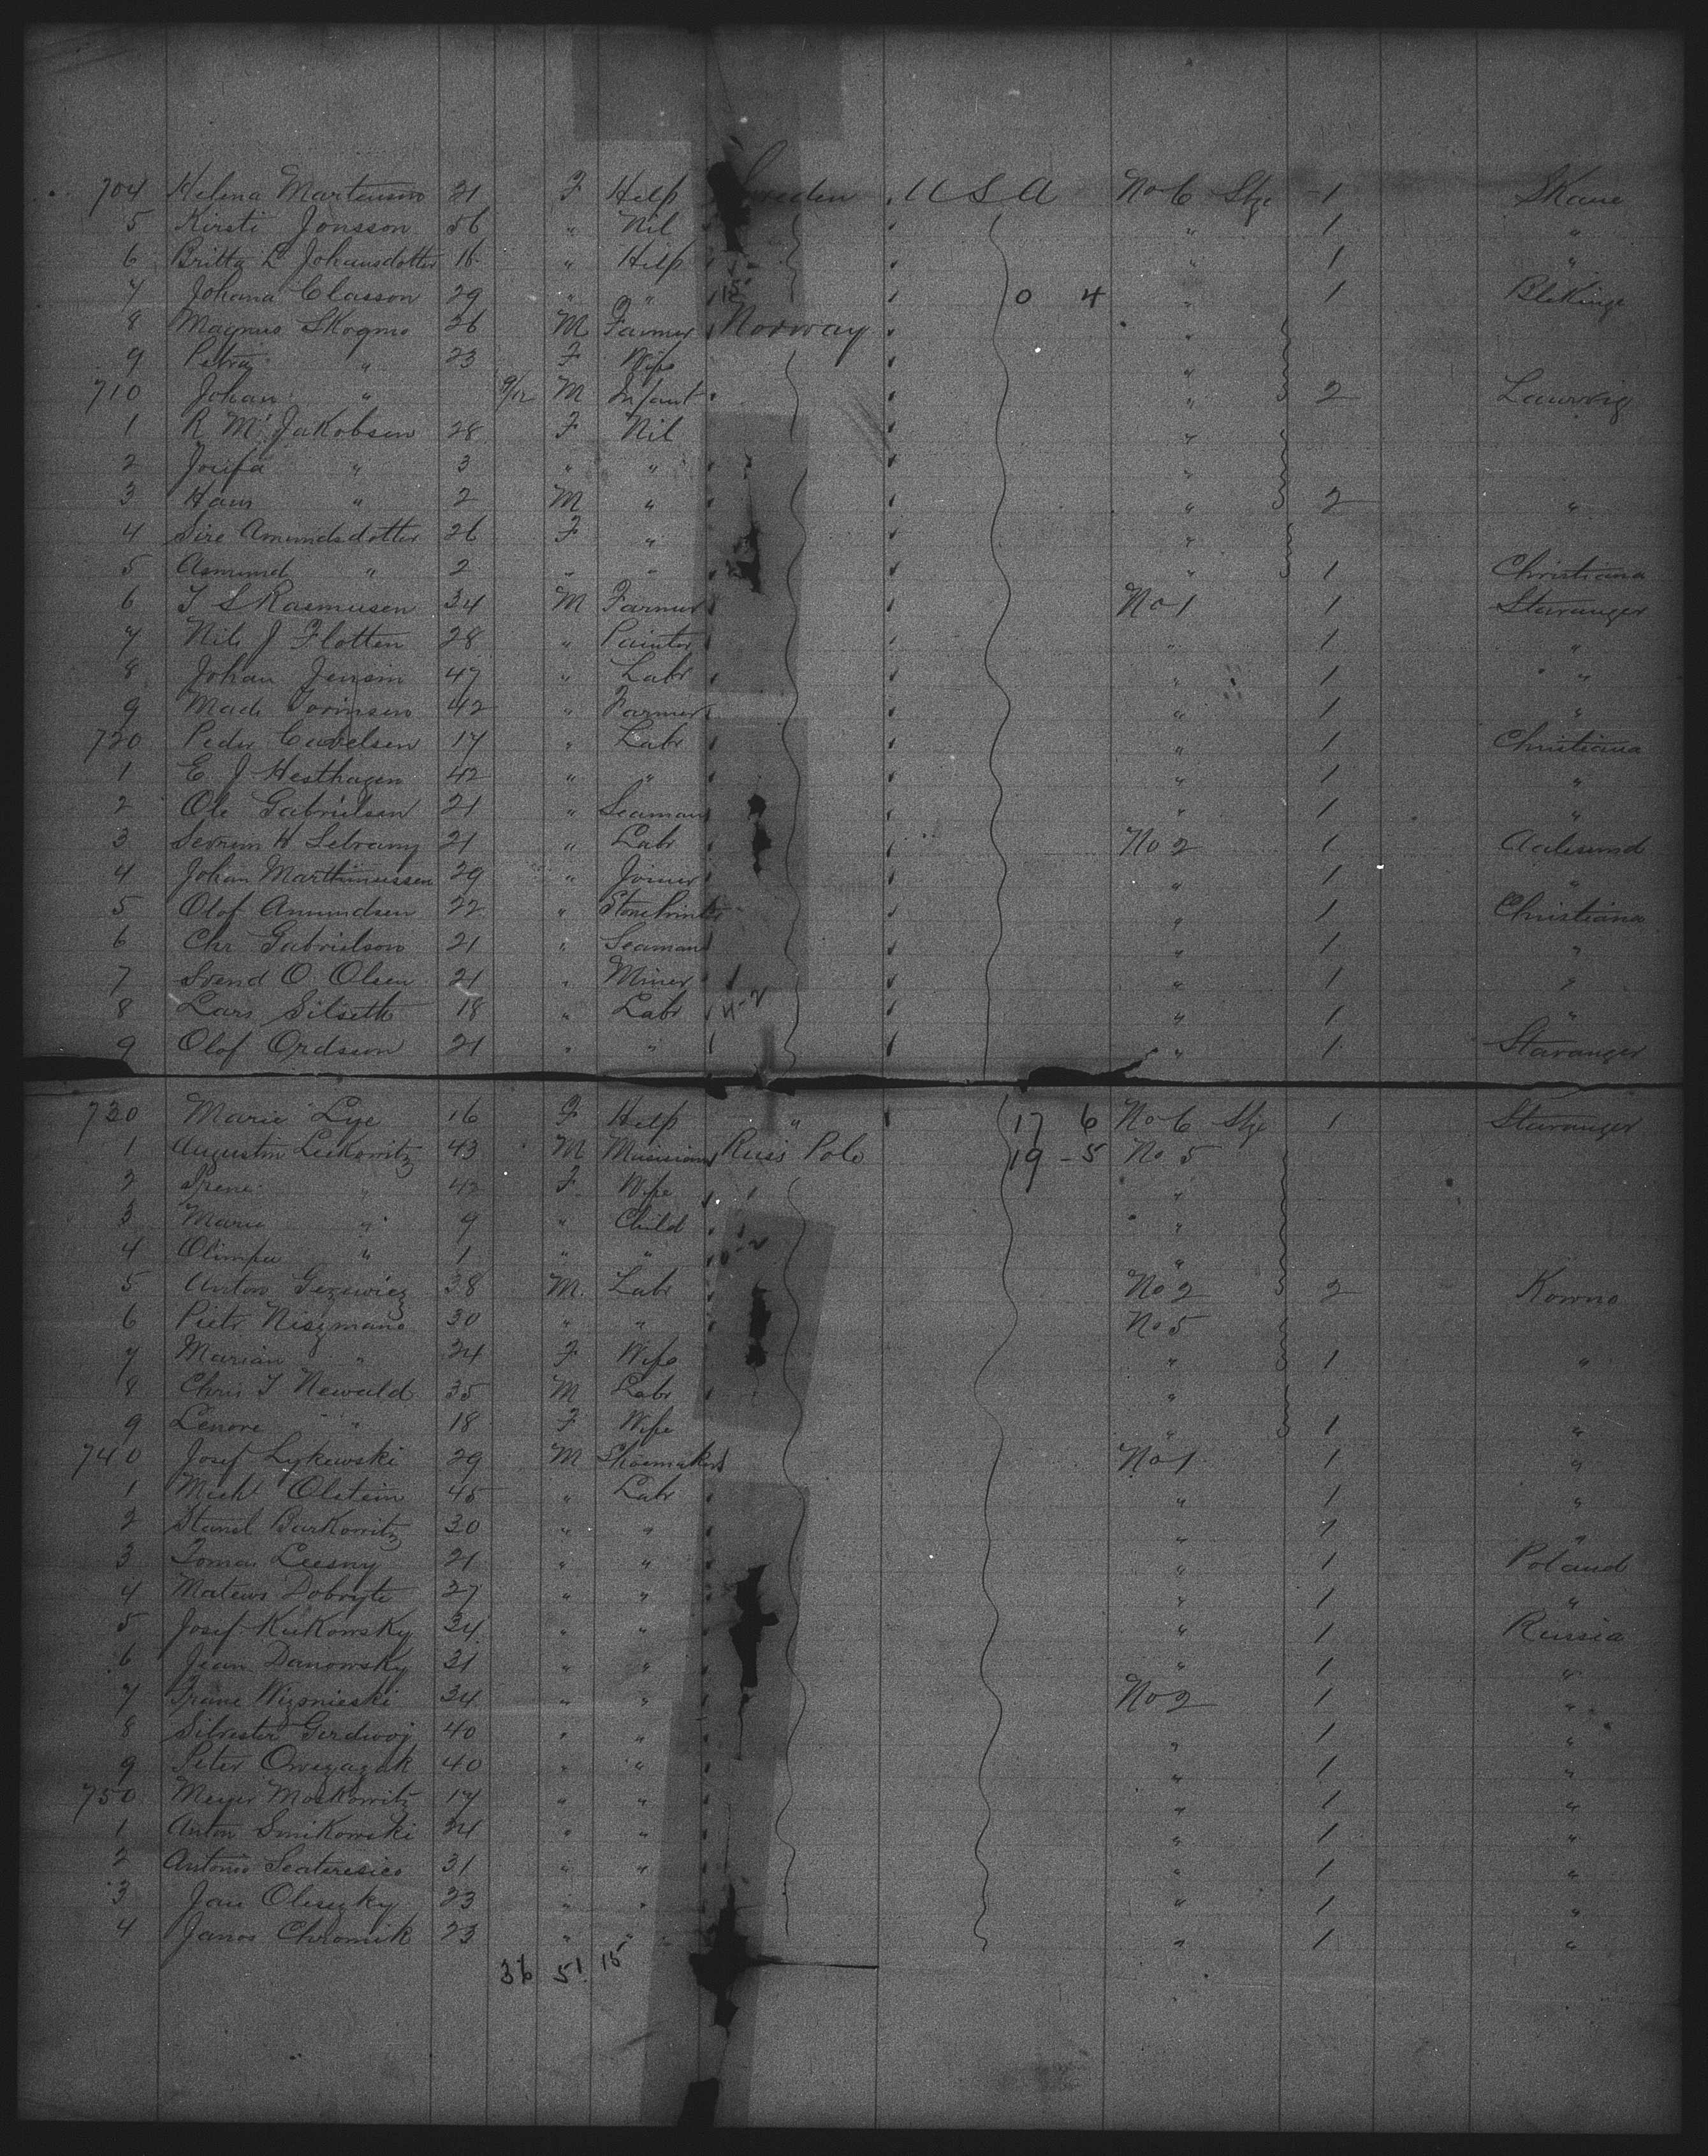 704 Helena Martenson 21 F Help Sweden USA No 6 Stge 1 Skane
5 Kirsti Jonsson 56 " Nil " 1 "
6 Britta L Johansdotter 16 " Help " 1 "
7 Johana Classon 29 " " 15 0 4 " 1 Blekinge
8 Magnus Skogmo 26 M Farmer Norway "
9 Petra " 23 F Wife "
710 Johan " 9/12 M Infant " 2 Laurvig
1 R M Jakobsen 28 F Nil "
2 Josifa " 3 " " "
3 Hans " 2 M " " 2 "
4 Sire Amundsdotter 26 F " "
5 Asmund " 2 " " " 1 Christiana
6 T S Rasmusen 34 M Farmer No 1 1 Stavanger
7 Nils J Flotten 28 " Painter " 1 "
8 Johan Jensin 47 " Labr " 1 "
9 Mads 42 " Farmer " 1 "
720 Peder 17 " Labr " 1 Christiana
1 E. J Hesthagen 42 " " " 1 "
2 Ole Gabrielsen 21 " Seaman " 1 "
3 21 " Labr No 2 1 Aalesund
4 Johan Marthinussen 29 " Joiner " 1 "
5 Olof Amundsen 22 " Stone Printer " 1 Christiana
6 Chr Gabrielson 21 " Seaman " 1 "
7 Svend O. Olsen 21 " Miner " 1 "
8 Lars Silseth 18 " Labr " 1 "
9 Olof Ordsson 21 " " " 1 Stavanger
730 Marie Lye 16 F Help " 17 6 No 6 Stge 1 Stavanger
1 Augustin Leikowitz 43 M Musician Russ Polo 19 - 5 No 5
2 Irene " 42 F Wife "
3 Marie " 9 " Child "
4 Olimpa " 1 " " "
5 Anton 38 M Labr No 2 2 Kowno
6 Pietr Niszmano 30 " " No 5
7 Marian " 24 F Wife " 1 "
8 Chris T Newald 35 M Labr "
9 Lenore " 18 F Wife " 1 "
740 Josef Lykewski 29 M Shoemaker No 1 1 "
1 Michl Olstein 45 " Labr " 1 "
2 Stanil Barkowitz 30 " " " 1 "
3 Tomas Leesny 21 " " " 1 Poland
4 Matews Dobryte 27 " " " 1 "
5 Josef Kukowsky 34 " " " 1 Russia
6 Jean Danowsky 31 " " " 1 "
7 Franc Wizsnieski 34 " " No 2 1 "
8 Silvester Gerdwoj 40 " " " 1 "
9 Peter 40 " " " 1 "
750 Meyer Moskowitz 17 " " " 1 "
1 Anton Smikowski 24 " " " 1 "
2 Antonio 31 " " " 1 "
3 Jan Oleszky 23 " " " 1 "
4 Janos Chromik 23 " " " 1 "
36 51 15